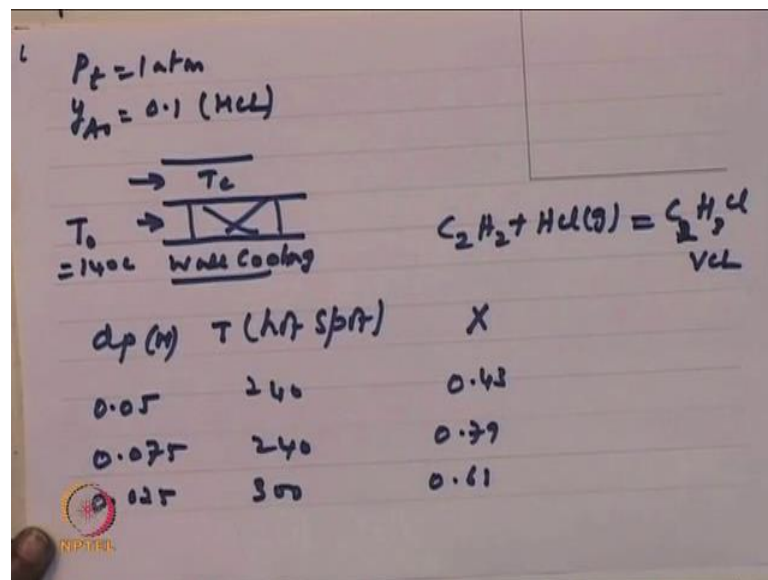 Pt = 1 atm
yA0 = 0.1 (HCl)
→ Tc
T0 →
= 140c Wall Cooling
C2H2 + HCl(g) = C2H3Cl
VCL
dp (M) T (hot Spot) X
0.05 240 0.43
0.075 240 0.79
0.025 300 0.61
NPTEL